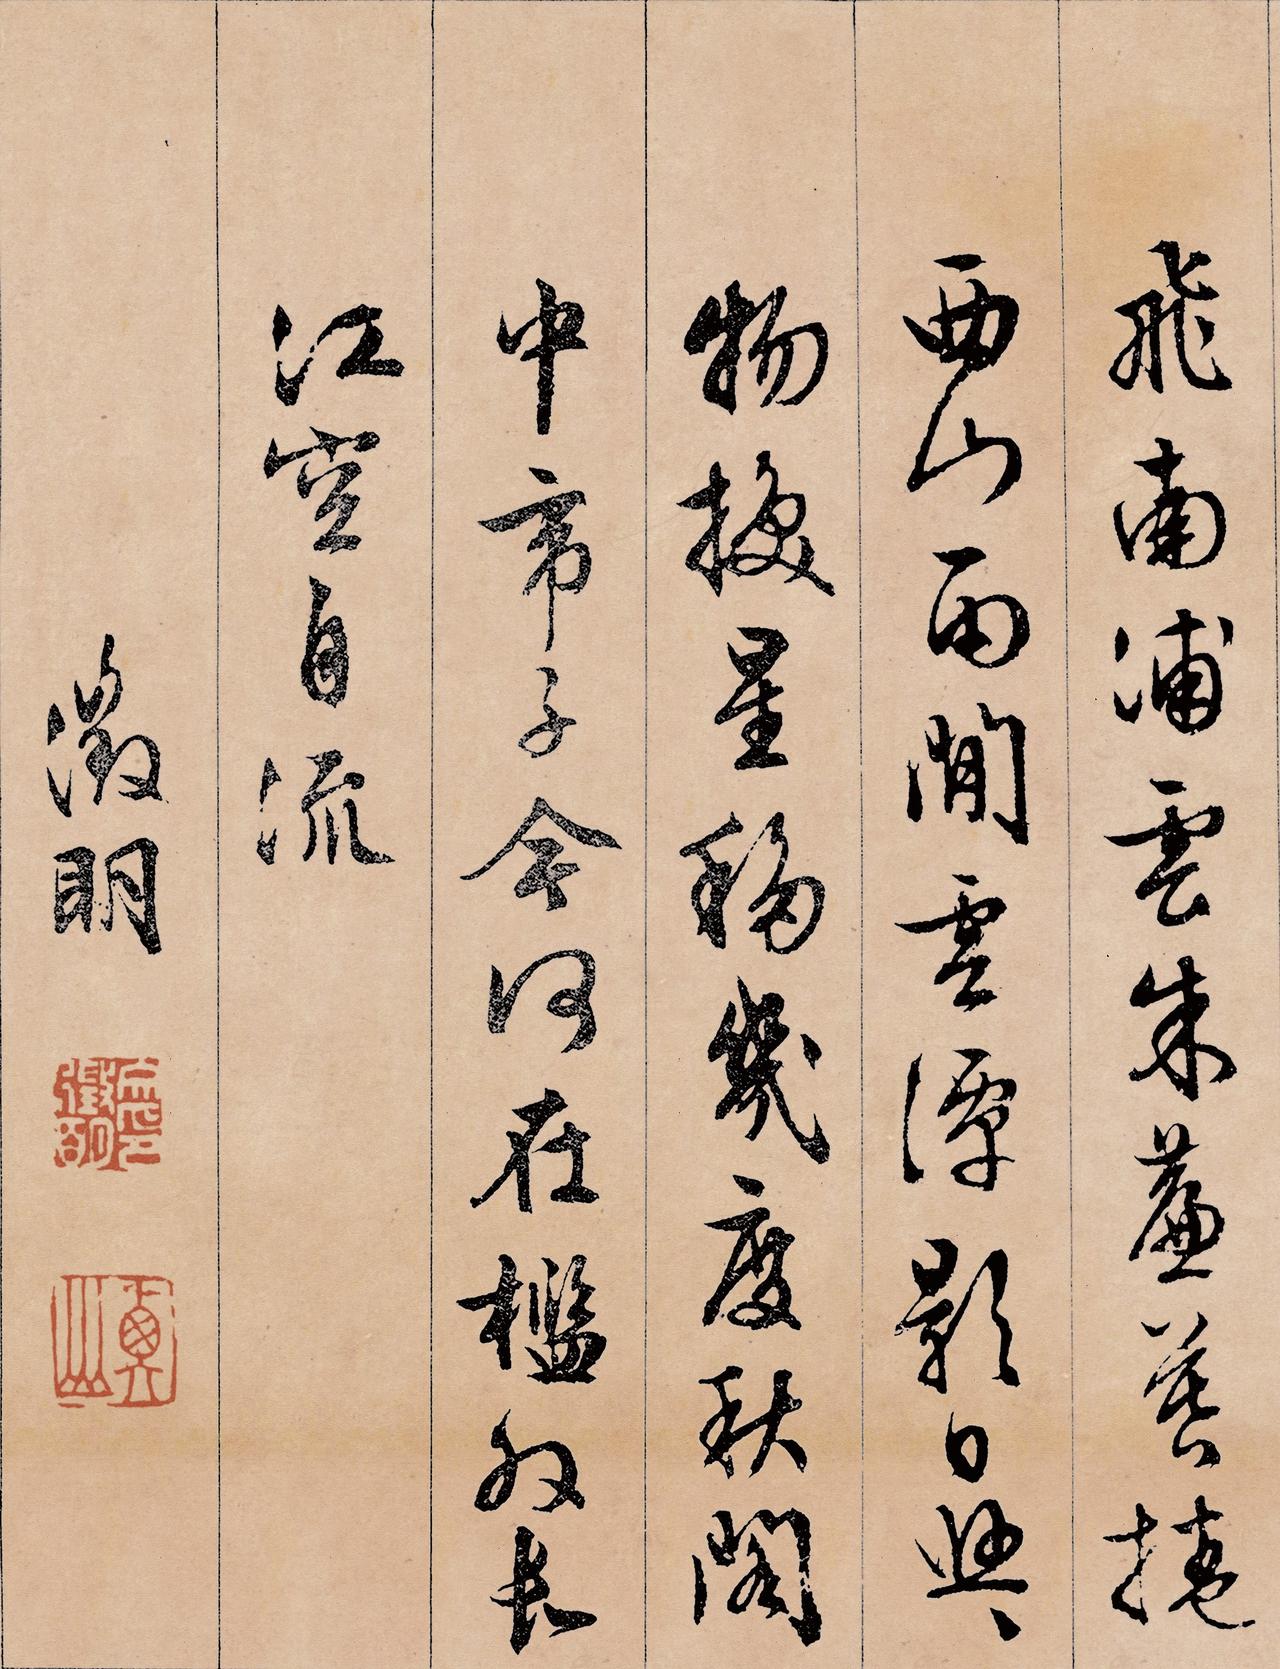 飛南浦雲朱簾暮捲
西山雨閒雲潭影日悠々
物換星移幾度秋閣
中帝子今何在檻外長
江空自流
徵明
衡山